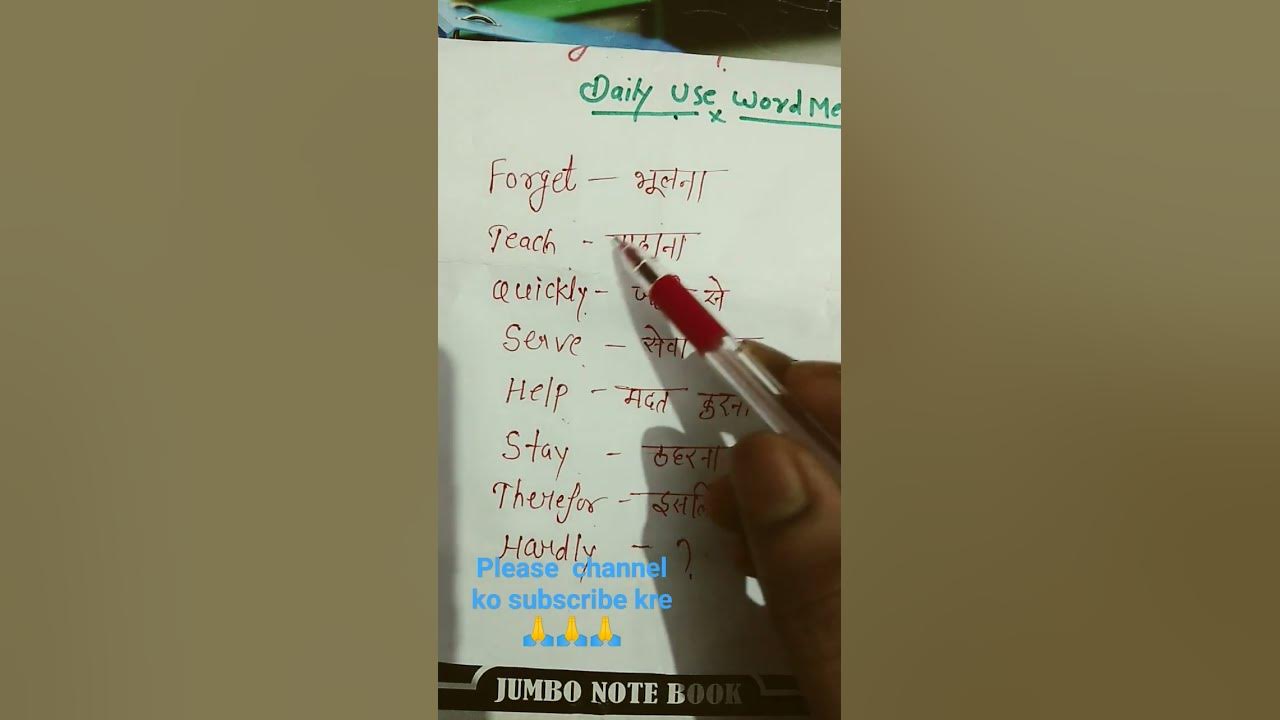 Daily Use Word Me
Forget - भूलना
Teach -
Quickly - से
Serve - सेवा
Help - मदत करना
Stay - ठहरना
Therefor - इसलि
Hardly - ?
Please channel
ko subscribe kre
🙏🙏🙏
JUMBO NOTE BOOK